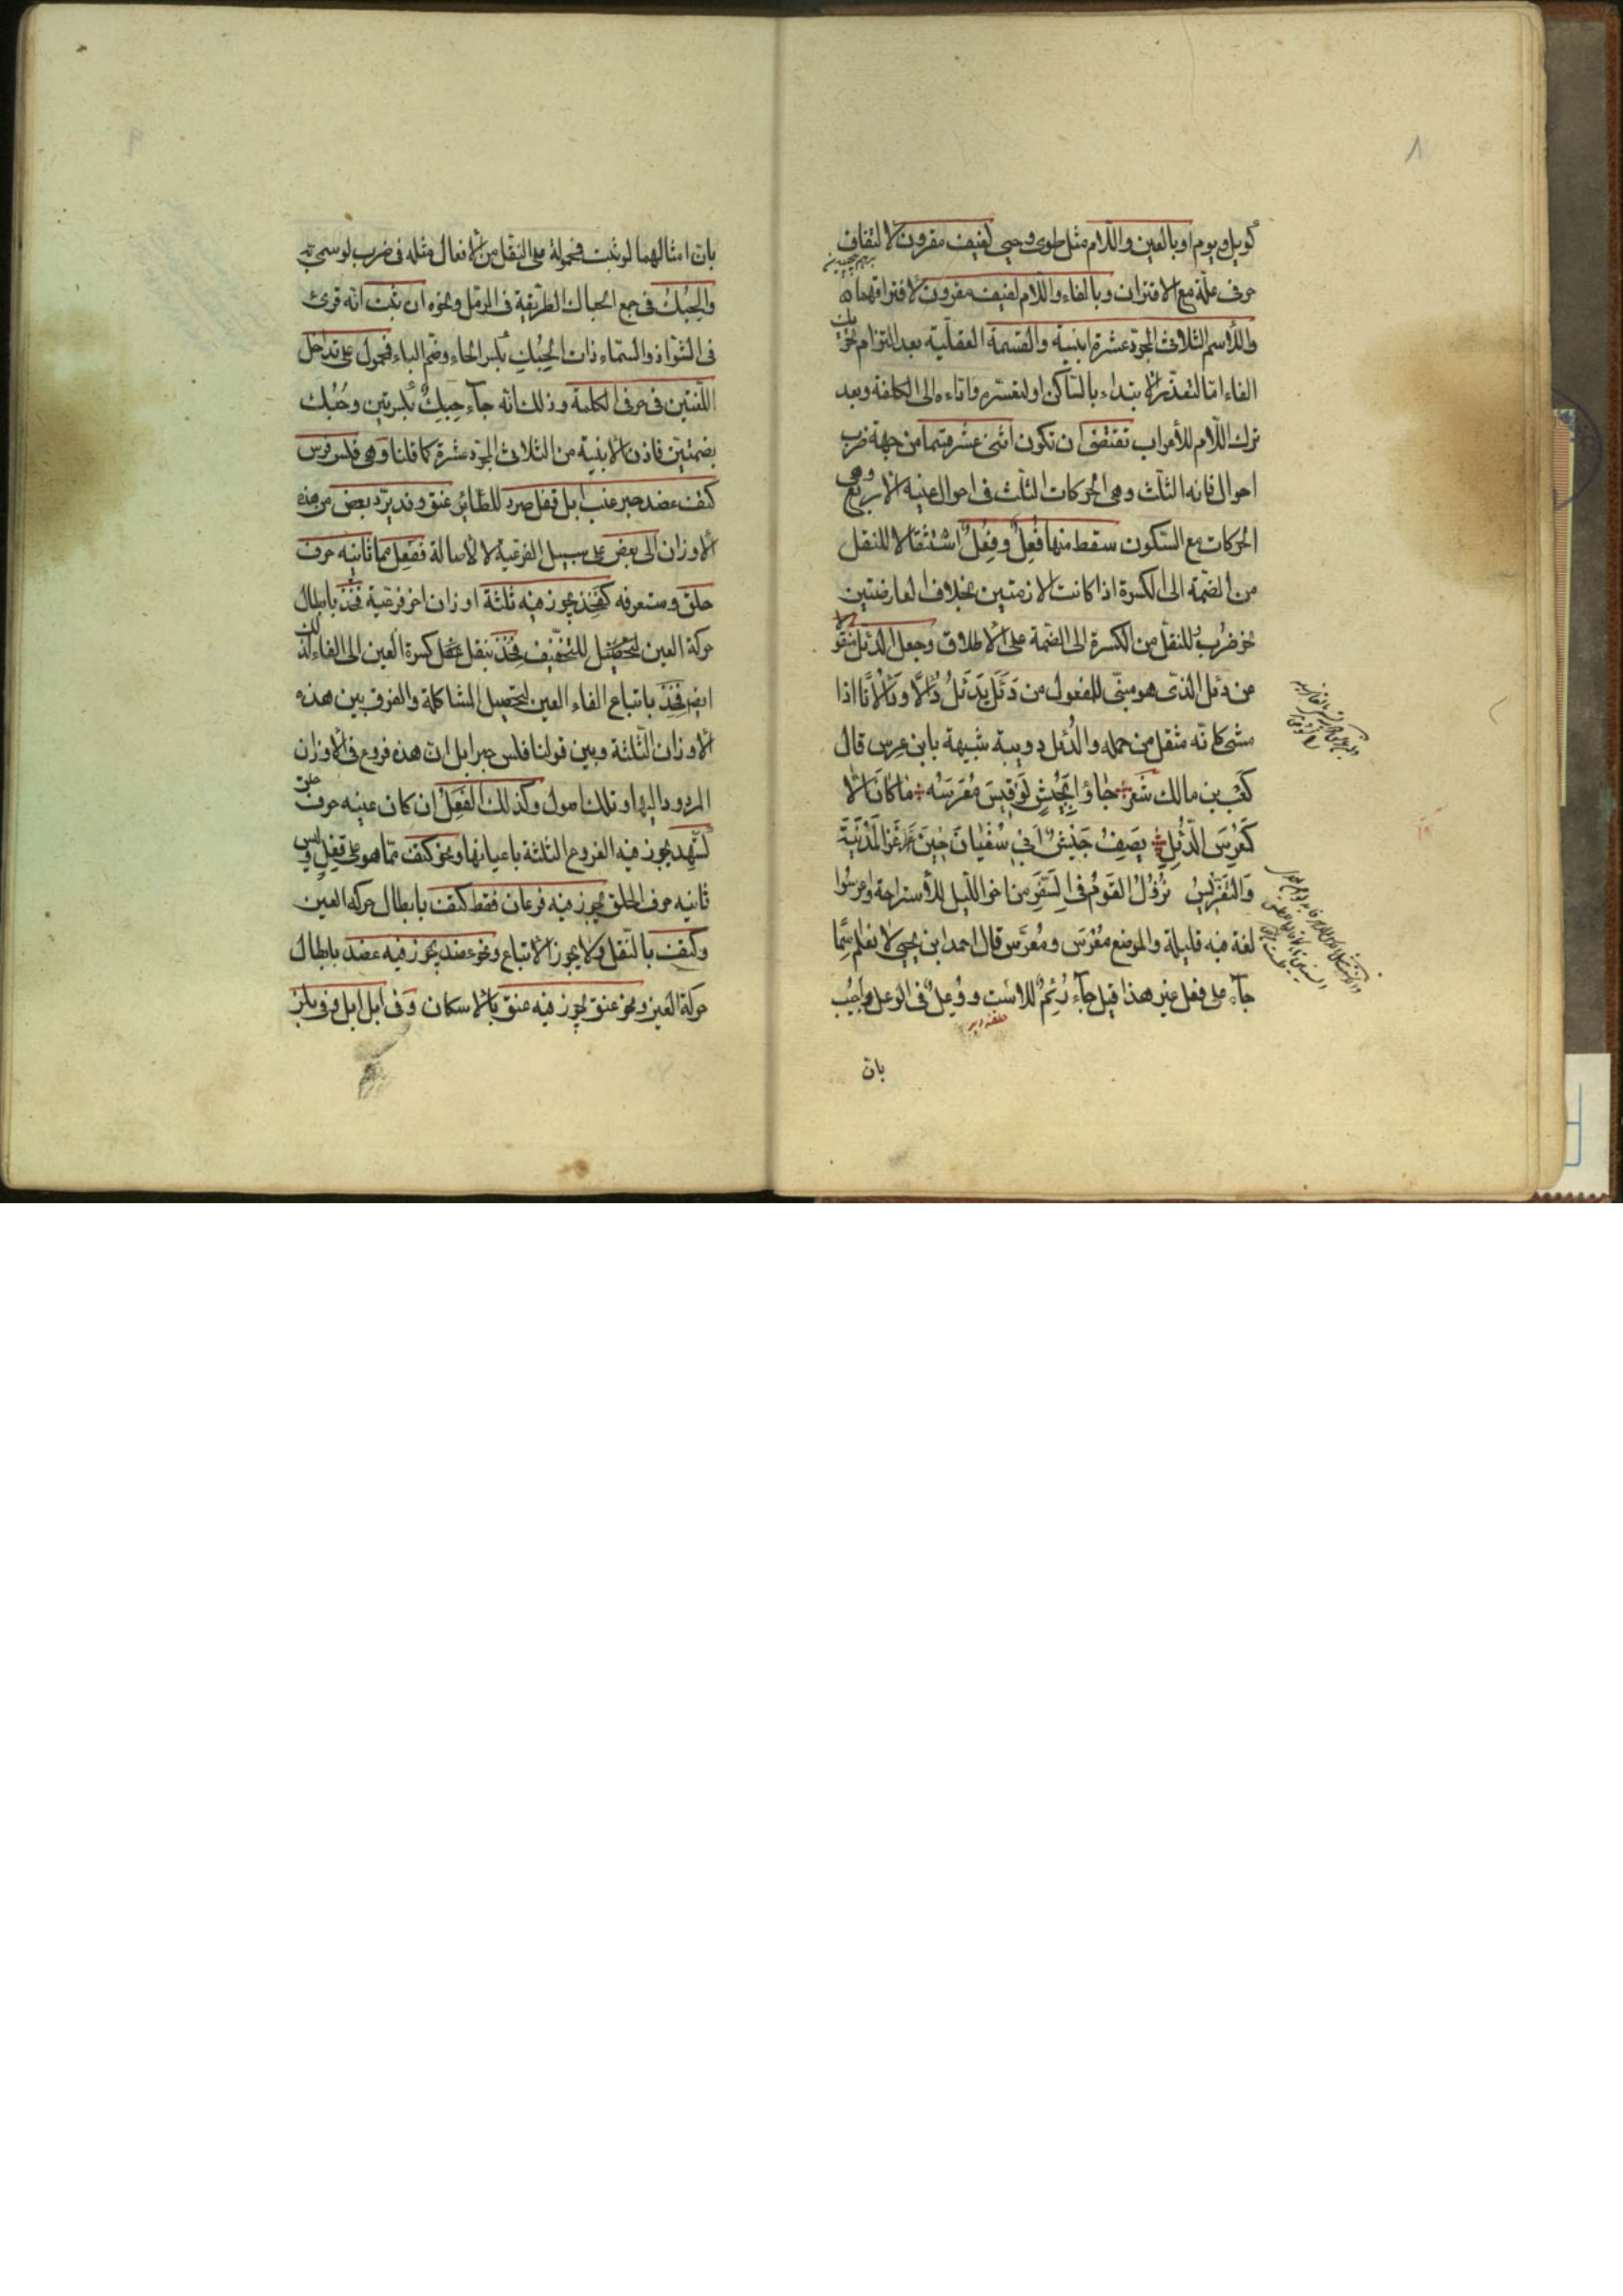 ٨
كويل ويوم او بالعين واللام مثل طوى وحيى لفيف مقرون لالتفاف
حرفى علة مع الاقتران وبالفاء واللام لفيف مفروق لافتراقهما
وللاسم الثلاثى المجرد عشرة ابنية والقسمة العقلية بعد التزام تحريك
الفاء امّا لتعذر الابتداء بالساكن او لتعسره واداءه الى الكلفة وبعد
ترك اللام للأعراب تقتضى ان تكون اثنى عشر قسما من جهة ضرب
احوال فائه الثلث وهى الحركات الثلث فى احوال عينه الاربع وهى
الحركات مع السكون سقط منها فُعِلٌ وفِعُلٌ استثقالا للنقل
من الضمة الى الكسرة اذا كانت لازمتين بخلاف العارضتين
نحو ضُرِبَ وللنقل من الكسرة الى الضمة على الاطلاق وجعل الدئل منقولا
من دئل الذى هو مبنى للمفعول من دَئَلَ يَدْئَلُ دَئْلًا ودَئَلَانًا اذا
مشى كانه مثقل من حمله والدُئل دويبة شبيهة بابن عرس قال
كعب بن مالك شعر جاؤا بجَيْشٍ لَوْ قِيسَ مُعْرَسُه ما كانَ الّا
كَمُعْرَسِ الدُّئِلِ يَصِفُ جَيْشَ اَبِى سُفْيانَ حِينَ غَزَا الْمَدِينَةَ
وَالتَّعْرِيسُ نُزُولُ القَوْمُ فى السَّفَرِ من اخر الليل للاستراحة واعرسُوا
لغة فيه قليلة والموضع مُعْرَس ومُعَرَّس قال احمد ابن يحيى لا نعلم اسما
جآء على فعل غير هذا قيل جآء رُئِمٌ للاست ووُعِلٌ فى الوعل واجيبُ
بان
بان امثالهما لو ثبت فمحمولة على النقل من الافعال مثله فى ضرب لو سمى به
والحِبُكُ فى جمع الحباك الطريقة فى الرمل ونحوه ان ثبت انه قرئ
فى الشواذ والسماء ذات الحِبُكِ بكسر الحاء وضم الباء فمحمول على تداخل
اللغتين فى حرفى الكلمة وذلك انه جآء حِبِكٌ بكسرتين وحُبُك
بضمتين فاذن الابنية من الثلاثى المجرد عشرة كما قلنا وهى فلس فرس
كتف عضد حبر عنب ابل قفل صرد للطائر عنق وقد يرد بعض من هذه
الاوزان الى بعض على سبيل الفرعية لا الاصالة ففعل مما ثانيه حرف
حلق وستعرفه كفخذ يجوز فيه ثلثة اوزان اخر فرعية فَخْذٌ بابطال
حركة العين للتخفيف فِخْذ بنقل كسرة العين الى الفاء لذلك
ايضا فِخِذ باتباع الفاء العين لتحصيل المشاكلة والفرق بين هذه
الاوزان الثلثة وبين قولنا فلس حبر ابل ان هذه فروع فى الاوزان
المردود اليها وتلك اصول وكذلك الفَعِلُ ان كان عينه حرف حلق
كشَهِد يجوز فيه الفروع الثلثة باعيانها ونحو كتف مما هو على فَعِلٍ وليس
ثانيه حرف الحلق يجوز فيه فرعان فقط كتف بابطال حركة العين
وكتف بالنقل ولا يجوز الاتباع ونحو عضد يجوز فيه عضد بابطال
حركة العين ونحو عنق يجوز فيه عنق بالاسكان وفى ابل ابل وفى بلز